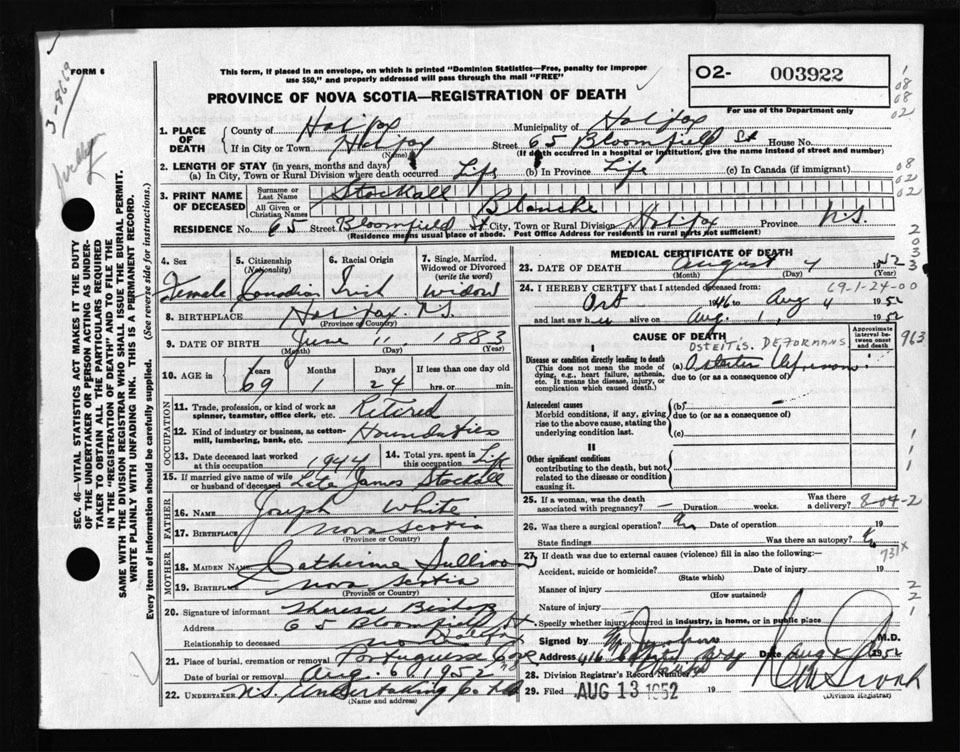 FORM 6
This form, if placed in an envelope, on which is printed "Dominion Statistics—Free, penalty for improper
use $50," and properly addressed will pass through the mail "FREE"
02- 003922
PROVINCE OF NOVA SCOTIA—REGISTRATION OF DEATH
For use of the Department only
3-8669
1. PLACE OF DEATH
County of Halifax Municipality of Halifax
If in City or Town Halifax Street 65 Bloomfield St House No.
(Name) (If death occurred in a hospital or institution, give the name instead of street and number)
2. LENGTH OF STAY (in years, months and days)
(a) In City, Town or Rural Division where death occurred Life (b) In Province Life (c) In Canada (if immigrant)
3. PRINT NAME OF DECEASED
Surname or Last Name Stockall
All Given or Christian Names Blanche
RESIDENCE No. 65 Street Bloomfield St City, Town or Rural Division Halifax Province N.S.
(Residence means usual place of abode. Post Office Address for residents in rural parts not sufficient)
4. Sex Female
5. Citizenship (Nationality) Canadian
6. Racial Origin Irish
7. Single, Married, Widowed or Divorced (write the word) Widow
8. BIRTHPLACE Halifax N.S.
(Province or Country)
9. DATE OF BIRTH June 11, 1883
(Month) (Day) (Year)
10. AGE Years 69 Months 1 Days 24 If less than one day
hrs. or min.
OCCUPATION
11. Trade, profession, or kind of work as spinner, teamster, office clerk, etc. Retired
12. Kind of industry or business, as cotton-mill, lumbering, bank, etc.
13. Date deceased last worked at this occupation 1944
14. Total yrs. spent in this occupation Life
15. If married give name of wife or husband of deceased Late James Stockall
FATHER
16. Name Joseph White
17. Birthplace Nova Scotia
(Province or Country)
MOTHER
18. MAIDEN NAME Catherine Sullivan
19. BIRTHPLACE Nova Scotia
(Province or Country)
20. Signature of informant Theresa Bishop
Address 65 Bloomfield St.
Halifax
Relationship to deceased
21. Place of burial, cremation or removal Portuguese Cove
Date of burial or removal Aug. 6, 1952
22. UNDERTAKER N.S. Undertaking Co. Ltd
(Name and address)
MEDICAL CERTIFICATE OF DEATH
23. DATE OF DEATH August 4 1952
(Month) (Day) (Year)
69-1-24-00
24. I HEREBY CERTIFY that I attended deceased from
Oct 1946 to Aug 4 1952
and last saw her alive on Aug. 1, 1952
CAUSE OF DEATH
Approximate interval between onset and death
OSTEITIS DEFORMANS
I
Disease or condition directly leading to death
(This does not mean the mode of dying, e.g., heart failure, asthenia, etc. It means the disease, injury, or complication which caused death.)
(a) Osteitis Deformans
due to (or as a consequence of)
Antecedent causes
Morbid conditions, if any, giving rise to the above cause, stating the underlying condition last.
(b)
due to (or as a consequence of)
(c)
II
Other significant conditions
contributing to the death, but not related to the disease or condition causing it.
25. If a woman, was the death associated with pregnancy? — Duration weeks. Was there a delivery?
8-04-2
26. Was there a surgical operation? No Date of operation 19
State findings Was there an autopsy? No
27. If death was due to external causes (violence) fill in also the following:—
Accident, suicide or homicide? Date of injury 19
(State which)
Manner of injury
(How sustained)
Nature of injury
Specify whether injury occurred in industry, in home, or in public place
Signed by M.D.
Address 416 Date Aug 1952
28. Division Registrar's Record Number
29. Filed AUG 13 1952 19
(Division Registrar)
SEC. 46—VITAL STATISTICS ACT MAKES IT THE DUTY
OF THE UNDERTAKER OR PERSON ACTING AS UNDER-
TAKER TO OBTAIN ALL THE PARTICULARS REQUIRED
IN THE "REGISTRATION OF DEATH" AND TO FILE THE
SAME WITH THE DIVISION REGISTRAR WHO SHALL ISSUE THE BURIAL PERMIT.
WRITE PLAINLY WITH UNFADING INK. THIS IS A PERMANENT RECORD.
Every item of information should be carefully supplied. (See reverse side for instructions.)
08
08
02
08
02
2033
963
731x